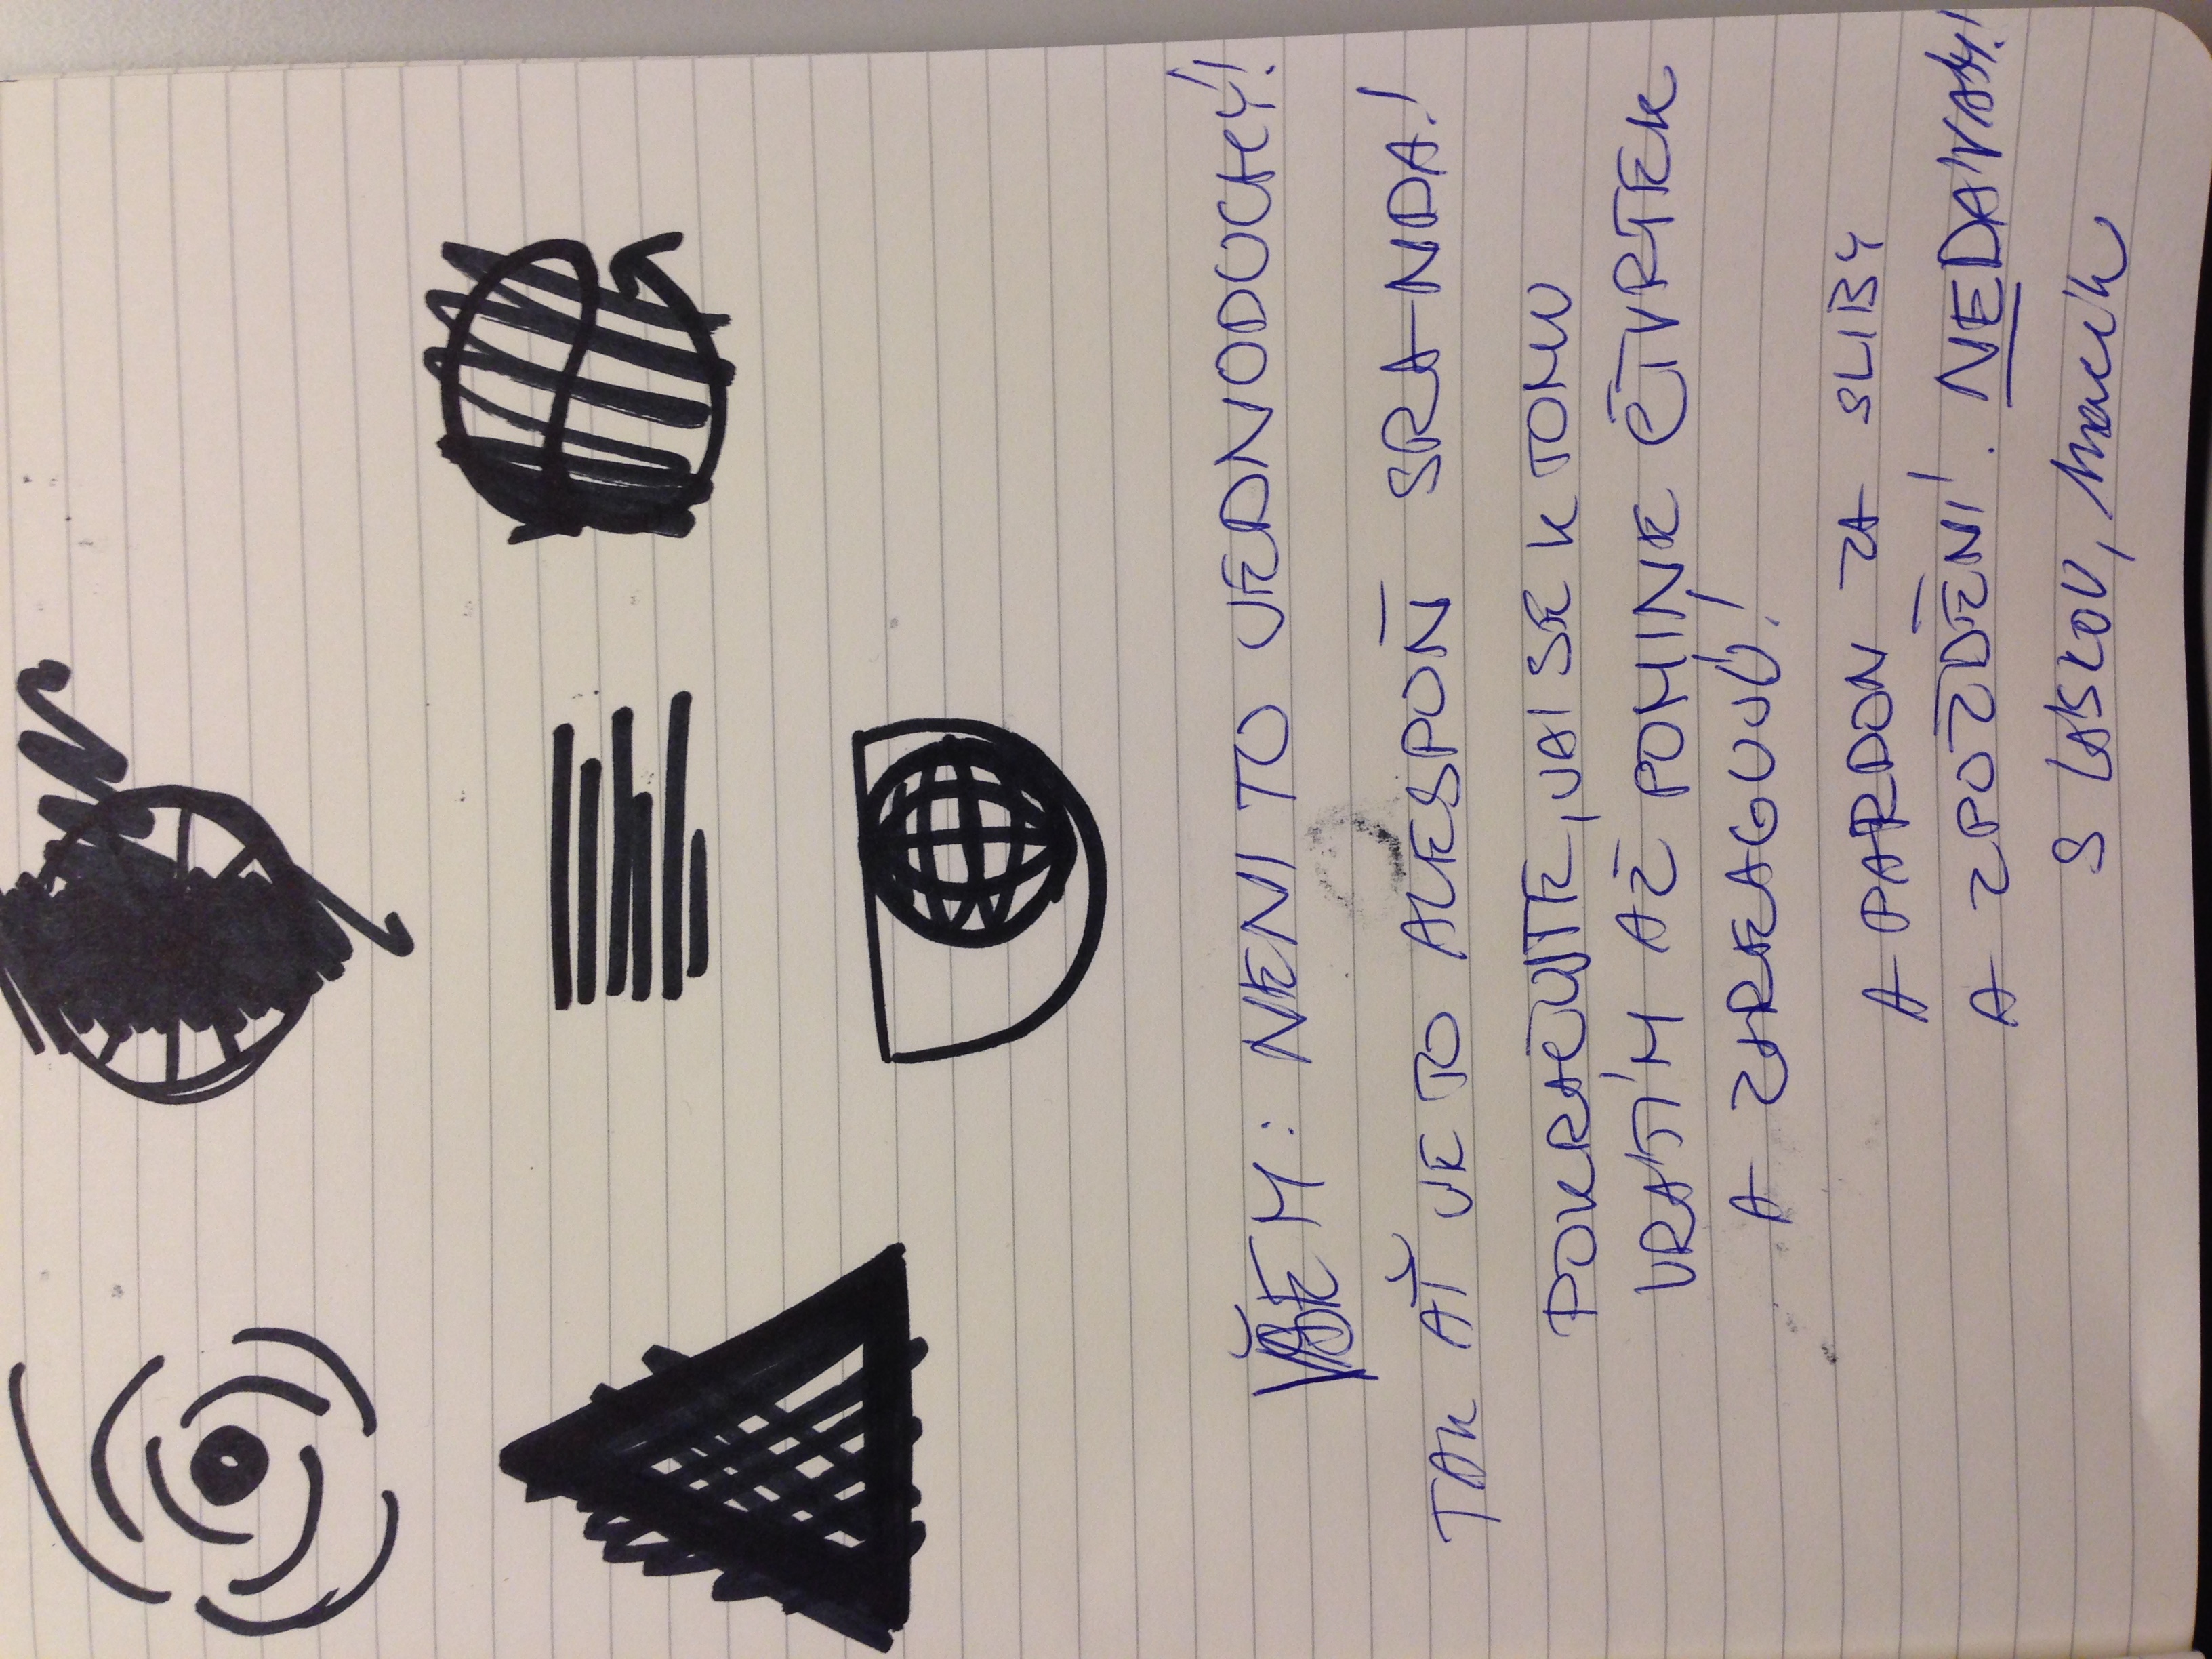 VŠEM: NENI TO JEDNODUCHÝ!
TAK AŤ JE TO ALESPOŇ SRANDA!
POKRAČUJTE, JÁ SE K TOMU
VRÁTÍM AŽ POMINE ČTVRTEK
A ZAREAGUJÚ!
A PARDON ZA SLIBY
A ZPOŽDĚNÍ. NEDÁVÁM!
S LÁSKOU,